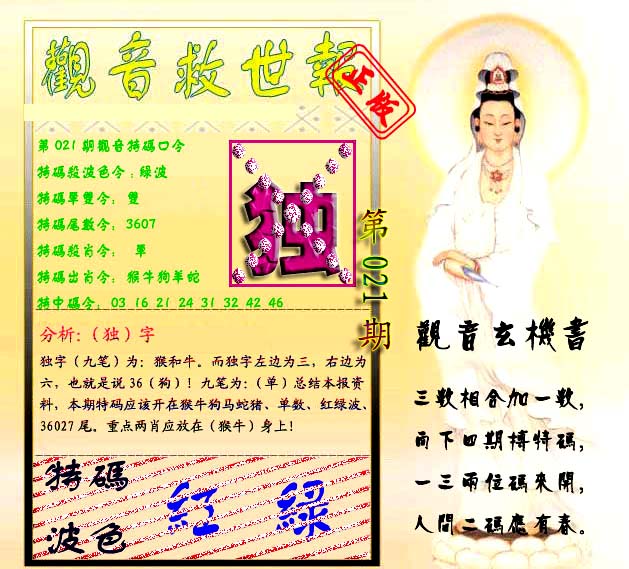 觀音救世報
正版
第021期觀音特碼口令
特碼殺波色令:綠波
特碼單雙令: 雙
特碼尾數令: 3607
特碼殺肖令: 單
特碼出肖令: 猴牛狗羊蛇
特中碼令: 03 16 21 24 31 32 42 46
独
第021期
分析:(独)字
独字(九笔)为:猴和牛。而独字左边为三,右边为
六,也就是说36(狗)!九笔为:(单)总结本报资
料,本期特码应该开在猴牛狗马蛇猪、单数、红绿波、
36027尾。重点两肖应放在(猴牛)身上!
特碼
波色
紅 綠
觀音玄機書
三數相合加一數,
兩下四期搏特碼,
一三兩位碼來開,
人間二碼應有春。